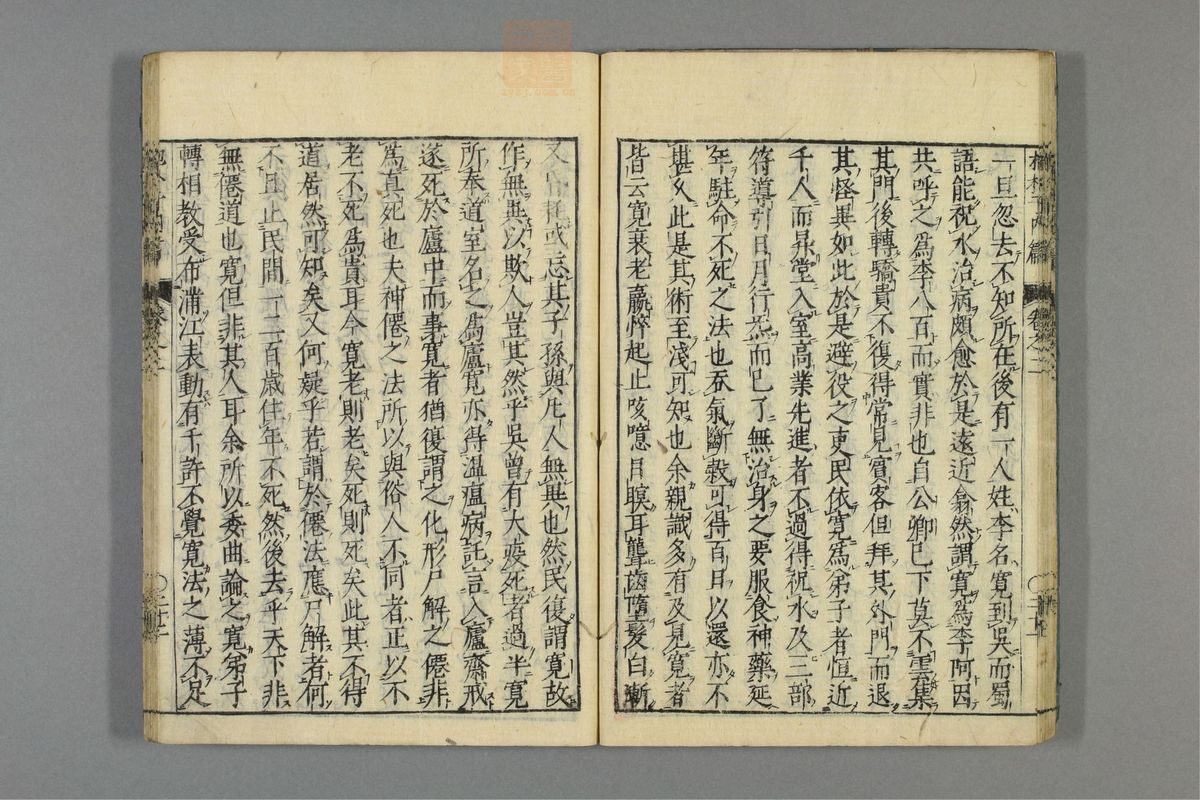 一旦忽去不知所在後有一人姓李名寛到吳而蜀
語能祝水治病頗愈於是遠近翕然謂寛爲李阿因
共呼之爲李八百而實非也自公卿已下莫不雲集
其門後轉驕貴不復得常見賓客但拜其外門而退
其怪異如此於是避役之吏民依寛爲弟子者恒近
千人而昇堂入室高業先進者不過得祝水及三部
符導引日月行炁而已了無治身之要服食神藥延
年駐命不死之法也吞氣斷穀可得百日以還亦不
堪久此是其術至淺可知也余親識多有及見寛者
皆云寛衰老羸悴起止咳噫目瞑耳聾齒墮髮白漸
又昏耗或忘其子孫與凡人無異也然民復謂寛故
作無異以欺人豈其然乎吳曾有大疫死者過半寛
所奉道室名之爲廬寛亦得溫瘟病託言入廬齋戒
遂死於廬中而事寛者猶復謂之化形尸解之僊非
爲真死也夫神僊之法所以與俗人不同者正以不
老不死爲貴耳今寛老則老矣死則死矣此其不得
道居然可知矣又何疑乎若謂於僊法應尸解者何
不且止民間一二百歲住年不死然後去乎天下非
無僊道也寛但非其人耳余所以委曲論之寛弟子
轉相教受布滿江表動有千許不覺寛法之薄不足